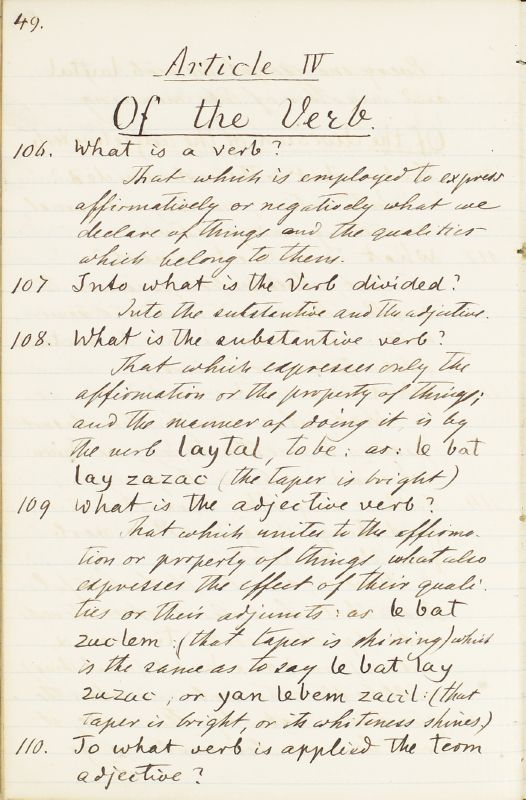 49.
Article IV
Of the Verb.
106. What is a verb?
That which is employed to express
affirmatively or negatively what we
declare of things and the qualities
which belong to them.
107 Into what is the Verb divided?
Into the substantive and the adjective.
108. What is the substantive verb?
That which expresses only the
affirmation or the property of things;
and the manner of doing it, is by
the verb laytal, to be; as: le bat
lay zazac (the taper is bright)
109 What is the adjective verb?
That which unites to the affirma-
tion or property of things, what also
expresses the effect of their quali-
ties or their adjuncts: as le bat
zaclem: (that taper is shining) which
is the same as to say le bat lay
zazac, or yan lebem zacil: (that
taper is bright, or its whiteness shines)
110. To what verb is applied the term
adjective?